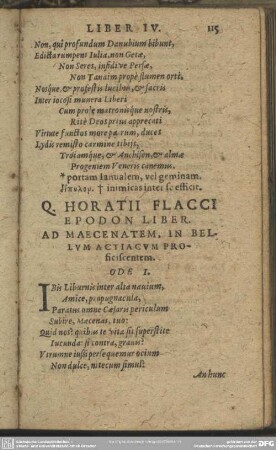 LIBER IV. 115
Non, qui profundum Danubium bibunt,
Edicta rumpent Iulia, non Getæ,
Non Seres, infidi ve Persæ,
Non Tanaim propè flumen orti.
Nosque & profestis lucibus, & sacris
Inter iocosi munera Liberi
Cum prole matronisque nostris,
Ritè Deos prius apprecati
Virtute functos more patrum, duces
Lydis remisto carmine tibiis,
Troiamque, & Anchisen, & almæ
Progeniem Veneris canemus.
* portam Ianualem, vel geminam.
† inimicas inter se efficit.
Q. HORATII FLACCI
EPODON LIBER.
AD MAECENATEM, IN BEL-
LVM ACTIACVM PRO-
ficiscentem.
ODE I.
IBis Liburnis inter alta nauium,
Amice, propugnacula,
Paratus omne Cæsaris periculum
Subire, Mæcenas, tuo:
Quid nos? quibus te vita sit superstite
Iucunda: si contra, grauis?
Vtrumne iussi persequemur ocium
Non dulce, ni tecum simul?
An hunc
DFG